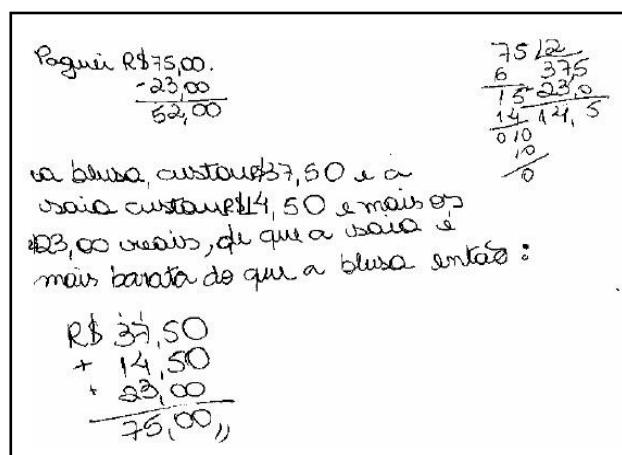 Paguei R$75,00.
-23,00
52,00
75 2
6 37,5
15 -23,0
14 14,5
010
10
0
a blusa, custou R$37,50 e a
saia custou R$14,50 e mais os
23,00 reais, de que a saia é
mais barata do que a blusa então:
R$ 37,50
+ 14,50
+ 23,00
75,00